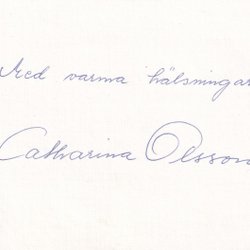 Med varma hälsningar
Catharina Olsson